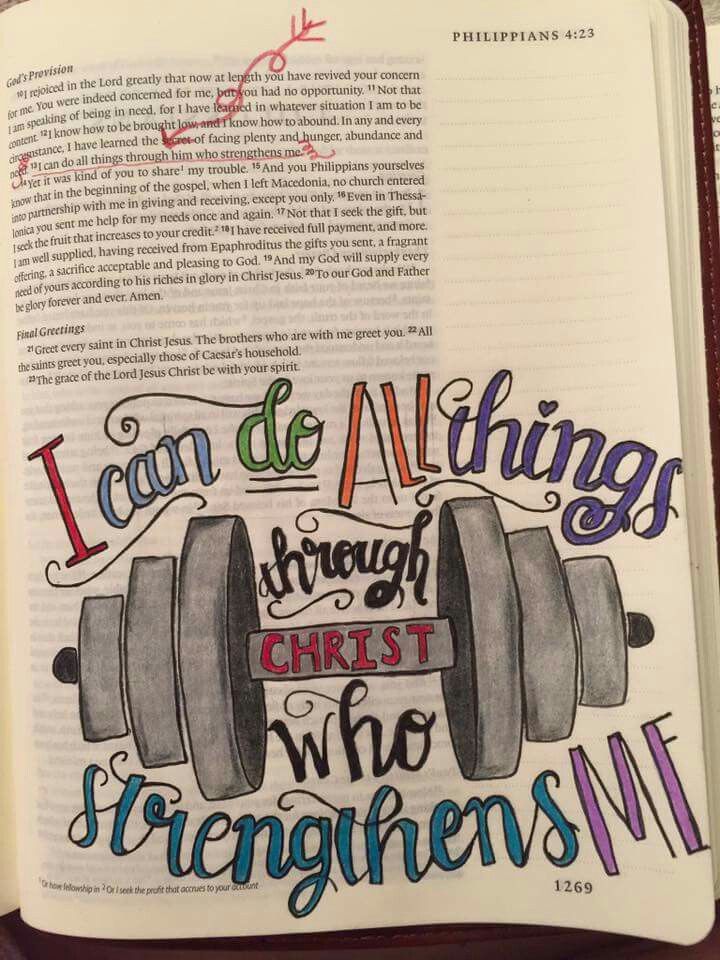 PHILIPPIANS 4:23
God's Provision
10 I rejoiced in the Lord greatly that now at length you have revived your concern
for me. You were indeed concerned for me, but you had no opportunity. 11 Not that
I am speaking of being in need, for I have learned in whatever situation I am to be
content. 12 I know how to be brought low, and I know how to abound. In any and every
circumstance, I have learned the secret of facing plenty and hunger, abundance and
need. 13 I can do all things through him who strengthens me.
14 Yet it was kind of you to share¹ my trouble. 15 And you Philippians yourselves
know that in the beginning of the gospel, when I left Macedonia, no church entered
into partnership with me in giving and receiving, except you only. 16 Even in Thessa-
lonica you sent me help for my needs once and again. 17 Not that I seek the gift, but
I seek the fruit that increases to your credit.² 18 I have received full payment, and more.
I am well supplied, having received from Epaphroditus the gifts you sent, a fragrant
offering, a sacrifice acceptable and pleasing to God. 19 And my God will supply every
need of yours according to his riches in glory in Christ Jesus. 20 To our God and Father
be glory forever and ever. Amen.
Final Greetings
21 Greet every saint in Christ Jesus. The brothers who are with me greet you. 22 All
the saints greet you, especially those of Caesar's household.
23 The grace of the Lord Jesus Christ be with your spirit.
I can do All things
through
CHRIST
who
strengthens ME
¹ Or have fellowship in ² Or I seek the profit that accrues to your account
1269